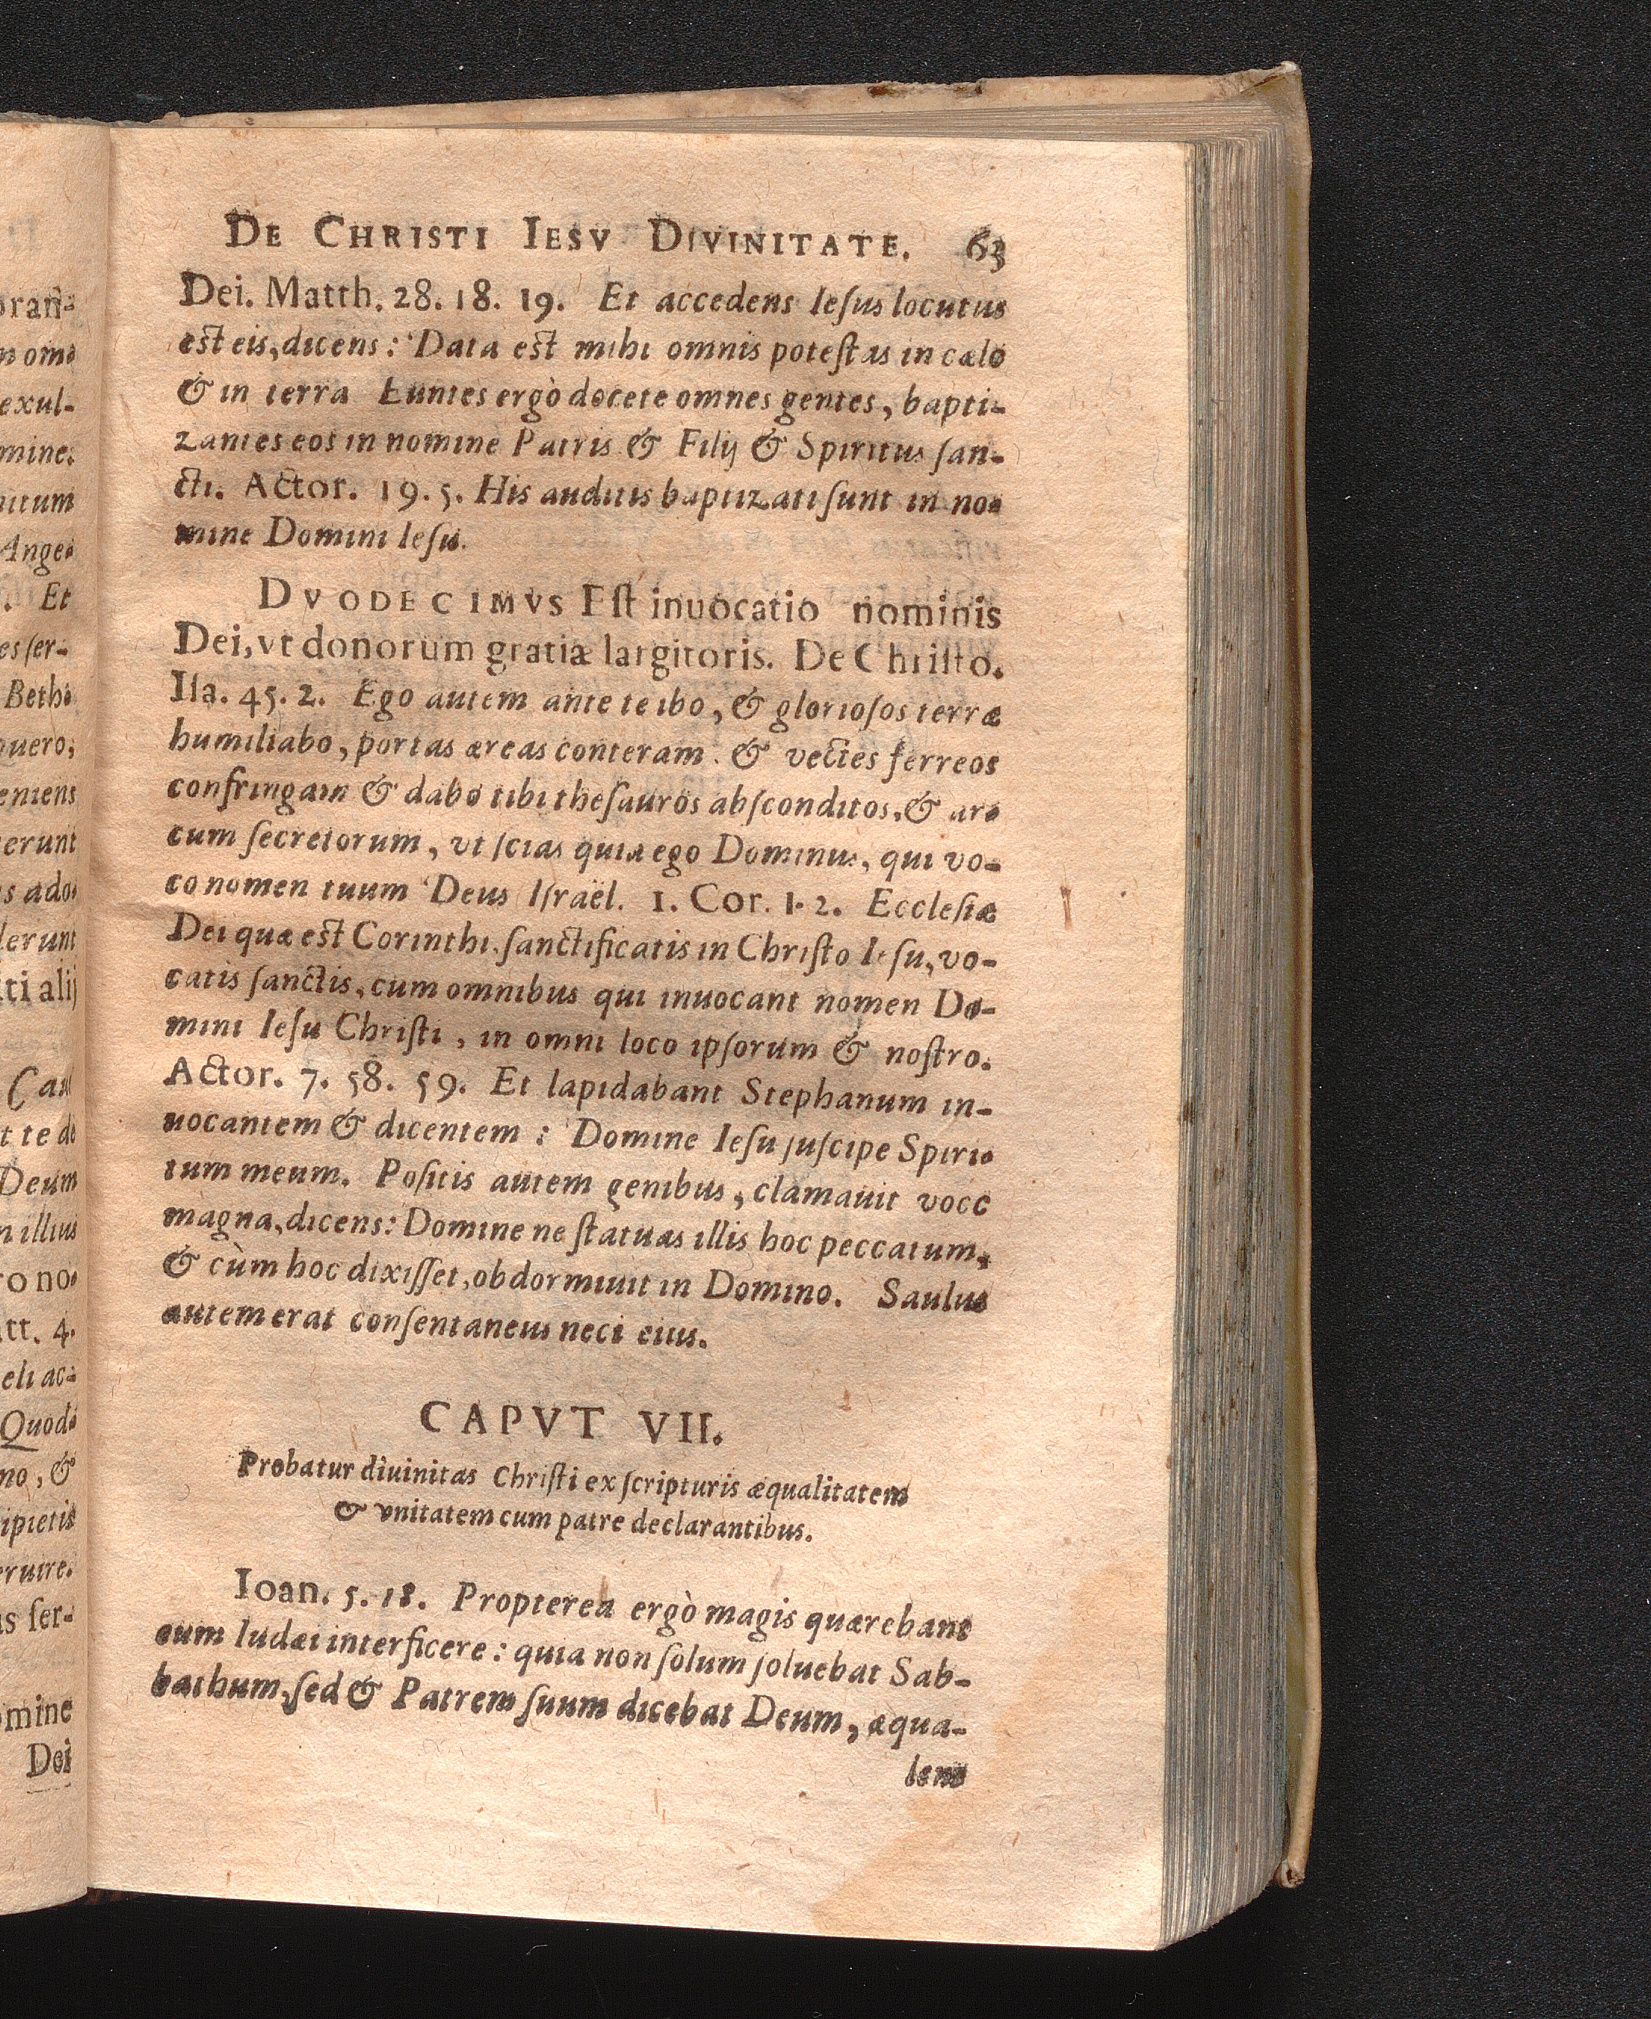 DE CHRISTI IESV DIVINITATE. 63
Dei. Matth. 28. 18. 19. Et accedens Iesus locutus
est eis, dicens: Data est mihi omnis potestas in cælo
& in terra Euntes ergò docete omnes gentes, bapti-
zantes eos in nomine Patris & Filij & Spiritus san-
cti. Actor. 19. 5. His auditis baptizati sunt in no-
mine Domini Iesu.
DVODECIMVS Est inuocatio nominis
Dei, vt donorum gratiæ largitoris. De Christo.
Isa. 45. 2. Ego autem ante te ibo, & gloriosos terræ
humiliabo, portas æreas conteram. & vectes ferreos
confringam & dabo tibi thesauros absconditos, & ar-
cum secretorum, vt scias quia ego Dominus, qui vo-
co nomen tuum Deus Israël. 1. Cor. 1. 2. Ecclesiæ
Dei quæ est Corinthi. sanctificatis in Christo Iesu, vo-
catis sanctis, cum omnibus qui inuocant nomen Do-
mini Iesu Christi, in omni loco ipsorum & nostro.
Actor. 7. 58. 59. Et lapidabant Stephanum in-
uocantem & dicentem: Domine Iesu suscipe Spiri-
tum meum. Positis autem genibus, clamauit voce
magna, dicens: Domine ne statuas illis hoc peccatum,
& cùm hoc dixisset, obdormiuit in Domino. Saulus
autem erat consentaneus neci eius.
CAPVT VII.
Probatur diuinitas Christi ex scripturis æqualitatem
& vnitatem cum patre declarantibus.
Ioan. 5. 18. Propterea ergò magis quærebant
eum Iudæi interficere: quia non solum soluebat Sab-
bathum, sed & Patrem suum dicebat Deum, æqua-
lem